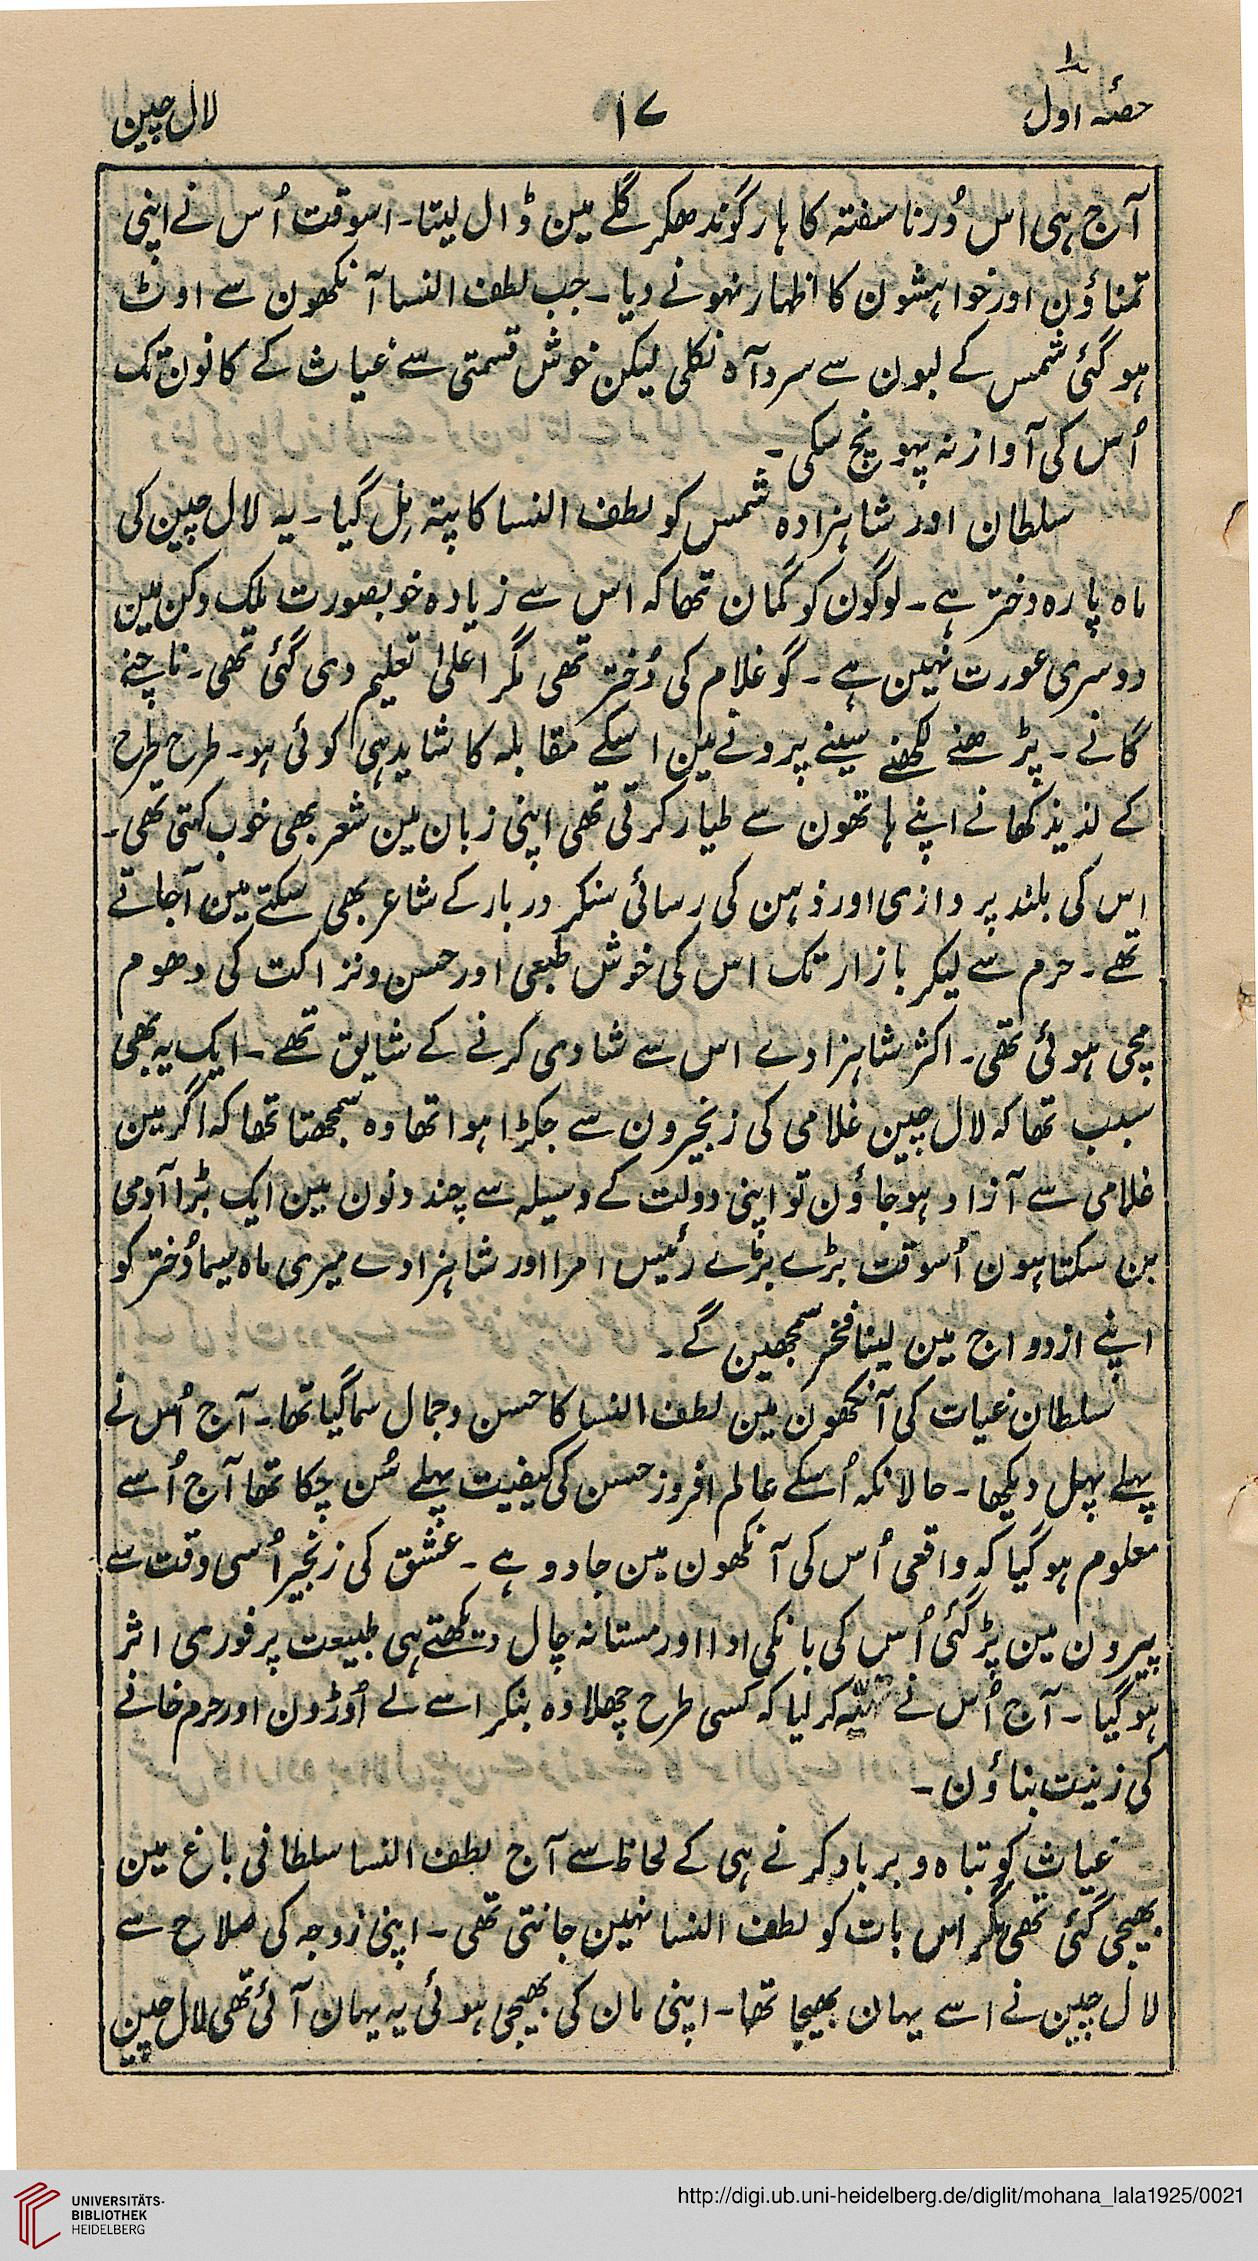 ۱
حصۂ اول
۱۷
لال چین
آج ہی اس دُر ناسفتہ کا ہار گوندھکر گلے مین ڈال لیتا۔ اسوقت اُس نے اپنی
تمناؤن اور خواہشون کا اظہار نہونے دیا۔ جب لطف النسا آنکھون سے اوٹ
ہو گئی شمس کے لبون سے سرد آہ نکلی لیکن خوش قسمتی سے غیاث کے کانون تک
اُس کی آواز نہ پہونچ سکی۔
سلطان اور شاہزادہ شمس کو لطف النسا کا پتہ مِل گیا۔ یہ لال چین کی
ماہ پارہ دختر ہے۔ لوگون کو گمان تھا کہ اس سے زیادہ خوبصورت ملک دکن مین
دوسری عورت نہین ہے۔ گو غلام کی دُختر تھی مگر اعلیٰ تعلیم دی گئی تھی۔ ناچنے
گانے۔ پڑھنے لکھنے سینے پرونے مین اسکے مقابلہ کا شاید ہی کوئی ہو۔ طرح طرح
کے لذیذ کھانے اپنے ہاتھون سے طیار کرتی تھی اپنی زبان مین شعر بھی خوب کہتی تھی۔
اس کی بلند پروازی اور ذہن کی رسائی سنکر دربار کے شاعر بھی سکتے مین آجاتے
تھے۔ حرم سے لیکر بازار تک اس کی خوش طبعی اور حسن و نزاکت کی دھوم
مچی ہوئی تھی۔ اکثر شاہزادے اس سے شادی کرنے کے شایق تھے۔ ایک یہ بھی
سبب تھا کہ لال چین غلامی کی زنجیرون سے جکڑا ہوا تھا وہ سمجھتا تھا کہ اگر مین
غلامی سے آزاد ہو جاؤن تو اپنی دولت کے وسیلہ سے چند دنون مین ایک بڑا آدمی
بن سکتا ہون اُسوقت بڑے بڑے رئیس امرا اور شاہزادے میری ماہ سیما دُختر کو
اپنے ازدواج مین لینا فخر سمجھین گے۔
سلطان غیاث کی آنکھون مین لطف النسا کا حسن و جمال سما گیا تھا۔ آج اُس نے
پہلے پہل دیکھا۔ حالانکہ اُسکے عالم افروز حسن کی کیفیت پہلے سُن چکا تھا آج اُسے
معلوم ہو گیا کہ واقعی اُس کی آنکھون مین جادو ہے۔ عشق کی زنجیر اُسی وقت سے
پیرون مین پڑ گئی اُس کی بانکی ادا اور مستانہ چال دیکھتے ہی طبیعت پر فوری اثر
ہو گیا۔ آج اُس نے تہیہ کر لیا کہ کسی طرح چھلاوہ بنکر اسے لے اُوڑون اور حرم خانے
کی زینت بناؤن۔
غیاث کو تباہ و برباد کرنے ہی کے لحاظ سے آج لطف النسا سلطانی باغ مین
بھیجی گئی تھی مگر اس بات کو لطف النسا نہین جانتی تھی۔ اپنی زوجہ کی صلاح سے
لال چین نے اسے یہان بھیجا تھا۔ اپنی مان کی بھیجی ہوئی یہ یہان آئی تھی لال چین
UNIVERSITÄTS-
BIBLIOTHEK
HEIDELBERG
http://digi.ub.uni-heidelberg.de/diglit/mohana_lala1925/0021